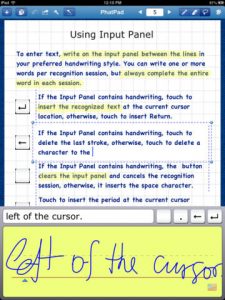 iPad
12:10 PM
PhatPad
5
Using Input Panel
To enter text, write on the input panel between the lines in
your preferred handwriting style. You can write one or more
words per recognition session, but always complete the entire
word in each session.
If the Input Panel contains handwriting, touch to
insert the recognized text at the current cursor
location, otherwise, touch to insert Return.
If the Input Panel contains handwriting, touch to
delete the last stroke, otherwise, touch to delete a
character to the
If the Input Panel contains handwriting, the button
clears the input panel and cancels the recognition
session, otherwise, it inserts the space character.
Touch to insert the period at the current cursor
left of the cursor.
left of the cursor.